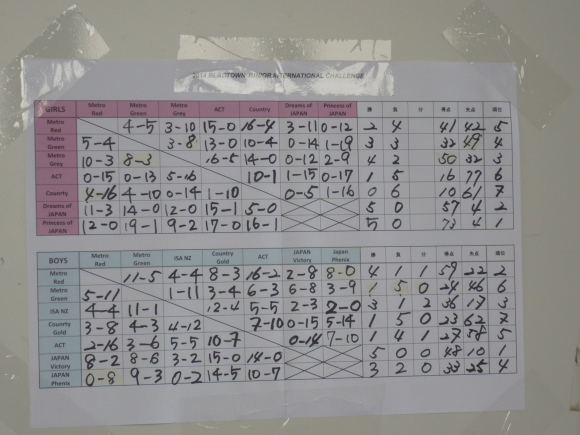 2018 BLACKTOWN INDOOR INTERNATIONAL CHALLENGE
GIRLS Metro Red Metro Green Metro Grey ACT Country Dreams of JAPAN Princess of JAPAN 勝 負 分 得点 失点 順位
Metro Red 4-5 3-10 15-0 16-4 3-11 0-12 2 4 41 42 5
Metro Green 5-4 3-8 13-0 10-4 0-14 1-19 3 3 32 49 4
Metro Grey 10-3 8-3 16-5 14-0 0-12 2-9 4 2 50 32 3
ACT 0-15 0-13 5-16 10-1 1-15 0-17 1 5 16 77 6
Country 4-16 4-10 0-14 1-10 0-5 1-16 0 6 10 61 7
Dreams of JAPAN 11-3 14-0 12-0 15-1 5-0 5 0 57 4 2
Princess of JAPAN 12-0 19-1 9-2 17-0 16-1 5 0 73 4 1
BOYS Metro Red Metro Green ISA NZ Country Gold ACT JAPAN Victory Japan Phenix 勝 負 分 得点 失点 順位
Metro Red 11-5 4-4 8-3 16-2 2-8 8-0 4 1 1 59 22 2
Metro Green 5-11 1-11 3-4 6-3 6-8 3-9 1 5 0 24 46 6
ISA NZ 4-4 11-1 12-4 5-5 2-3 2-0 3 1 2 36 17 3
Country Gold 3-8 4-3 4-12 7-10 0-15 5-14 1 5 0 23 62 7
ACT 2-16 3-6 5-5 10-7 0-14 7-10 1 4 1 27 58 5
JAPAN Victory 8-2 8-6 3-2 15-0 14-0 5 0 0 48 10 1
JAPAN Phenix 0-8 9-3 0-2 14-5 10-7 3 2 0 33 25 4